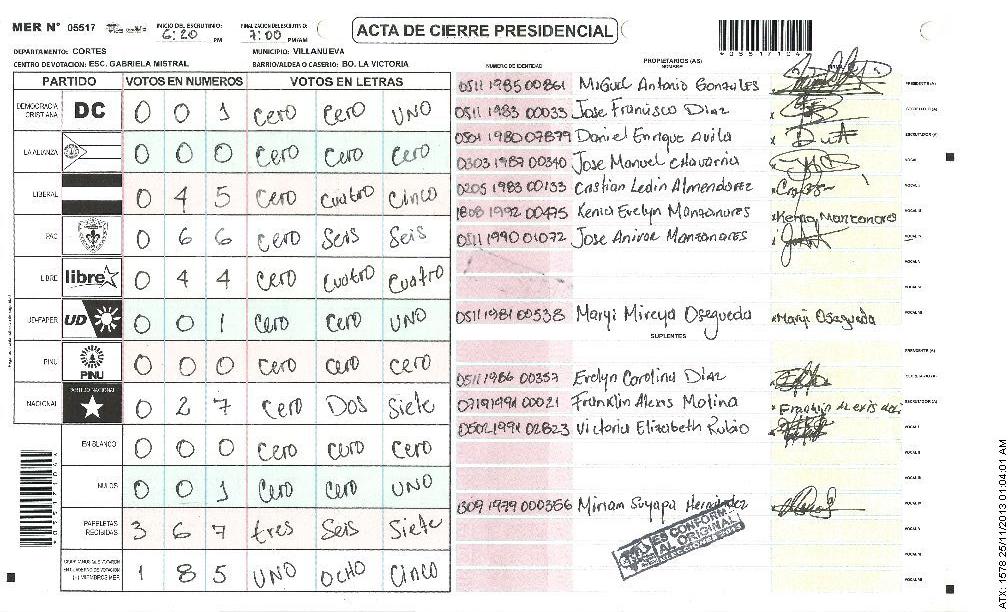 MER N° 05517 INICIO DEL ESCRUTINIO: 6:20 PM FINALIZACION ESCRUTINIO: 7:00 PM/AM ACTA DE CIERRE PRESIDENCIAL
DEPARTAMENTO: CORTES MUNICIPIO: VILLANUEVA
CENTRO DE VOTACION: ESC. GABRIELA MISTRAL BARRIO/ALDEA O CASERIO: BO. LA VICTORIA
PARTIDO VOTOS EN NUMEROS VOTOS EN LETRAS
DEMOCRACIA CRISTIANA DC 0 0 1 Cero Cero UNO
LA ALIANZA 0 0 0 Cero Cero Cero
LIBERAL 0 4 5 Cero Cuatro Cinco
PAC 0 6 6 Cero Seis Seis
LIBRE libre 0 4 4 Cero Cuatro Cuatro
UD-FAPER UD 0 0 1 Cero Cero UNO
PINU PINU 0 0 0 Cero Cero Cero
NACIONAL PARTIDO NACIONAL 0 2 7 Cero Dos Siete
EN BLANCO 0 0 0 Cero Cero Cero
NULOS 0 0 1 Cero Cero UNO
PAPELETAS RECIBIDAS 3 6 7 tres Seis Siete
1 8 5 UNO OCHO Cinco
NUMERO DE IDENTIDAD PROPIETARIOS (AS)
NOMBRE
0511 1985 00861 Miguel Antonio Gonzales PRESIDENTE (A)
0511 1983 00033 Jose Francisco Diaz SECRETARIO (A)
0501 1980 07879 Daniel Enrique Avila ESCRUTADOR (A)
0303 1987 00340 Jose Manuel chavarria VOCAL I
0205 1983 00133 Cristian Ledin Almendarez VOCAL II
1808 1992 00475 Kenia Evelyn Manzanares Kenia Manzanares VOCAL III
0511 1990 01072 Jose Anivar Manzanares VOCAL IV
VOCAL V
0511 1981 00538 Maryi Mireya Osegueda Maryi Osegueda
SUPLENTES
PRESIDENTE (A)
0511 1986 00357 Evelyn Carolina Diaz SECRETARIO (A)
0719 1991 00021 Franklin Alexis Molina Franklin Alexis ESCRUTADOR (A)
0502 1991 02823 Victoria Elizabeth Rubio VOCAL I
VOCAL II
1309 1979 000356 Miriam Suyapa Hernandez
ES CONFORME
ORIGINAL
0 5 5 1 7 1 0 4
ATX: 1578 25/11/2013 01:04:01 AM